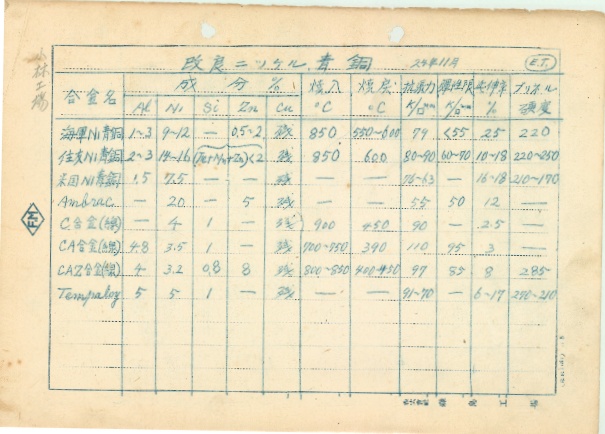 改良ニッケル青銅 24年11月 E.T.
小林工場
合金名 成分 % 焼入 焼戻 抗張力 弾性限 延伸率 ブリネル
Al Ni Si Zn Cu °C °C K/□mm K/□mm % 硬度
海軍Ni青銅 1~3 9~12 — 0.5~2 残 850 550~600 79 <55 25 220
住友Ni青銅 2~3 14~16 (Fe+Mn+Zn)<2 残 850 600 80~90 60~70 10~18 220~250
米国Ni青銅 1.5 7.5 — — 残 — — 76~63 — 16~18 210~170
Ambrac — 20 — 5 残 — — 55 50 12 —
C合金(線) — 4 1 — 残 900 450 90 — 2.5 —
CA合金(線) 4.8 3.5 1 — 残 700~750 390 110 95 3 —
CAZ合金(線) 4 3.2 0.8 8 残 800~850 400~450 97 85 8 285
Tempaloy 5 5 1 — 残 — — 91~70 — 6~17 290~210